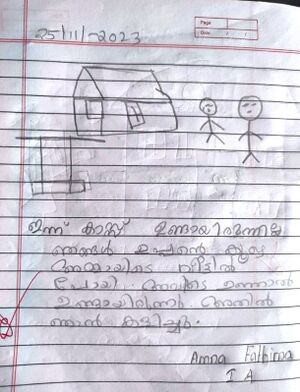 Page
Date
25/11/-2023
ഇന്ന് ക്ലാസ്സ് ഉണ്ടായിരുന്നില്ല
ഞങ്ങൾ ഉപ്പന്റെ കൂടെ
അമ്മായിടെ വീട്ടിൽ
പോയി അവിടെ ഊഞ്ഞാൽ
ഉണ്ടായിരുന്നു അതിൽ
ഞാൻ കളിച്ചു.
Amna Fathima
I A